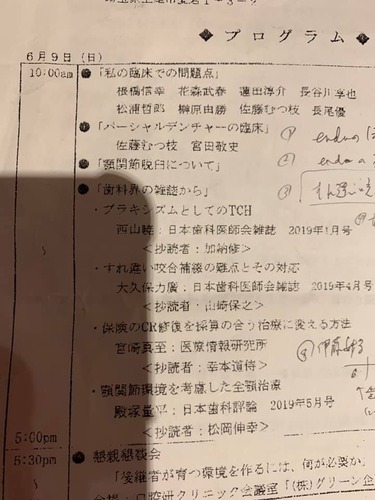 ◆プログラム◆
6月9日（日）
10:00am ●「私の臨床での問題点」
根橋信幸 花森武春 蓮田淳介 長谷川享也
松浦哲郎 榊原由勝 佐藤むつ枝 長尾優
●「パーシャルデンチャーの臨床」
佐藤むつ枝 宮田敬史
●「顎関節脱臼について」
●「歯科界の雑誌から」
・ブラキシズムとしてのTCH
西山暁：日本歯科医師会雑誌 2019年1月号
～
＜抄読者：加納修＞
・すれ違い咬合補綴の難点とその対応
大久保力廣：日本歯科医師会雑誌 2019年4月号
＜抄読者・山崎保之＞
・保険のCR修復を採算の合う治療に変える方法
宮崎真至：医療情報研究所
＜抄読者：幸本道侍＞
・顎関節環境を考慮した全顎治療
殿塚量平：日本歯科評論 2019年5月号
5:00pm ＜抄読者：松岡伸幸＞
5:30pm ●懇親懇談会
「後継者が育つ環境を作るには、何が必要か
口腔研クリニック会議室「(株)グリーン企